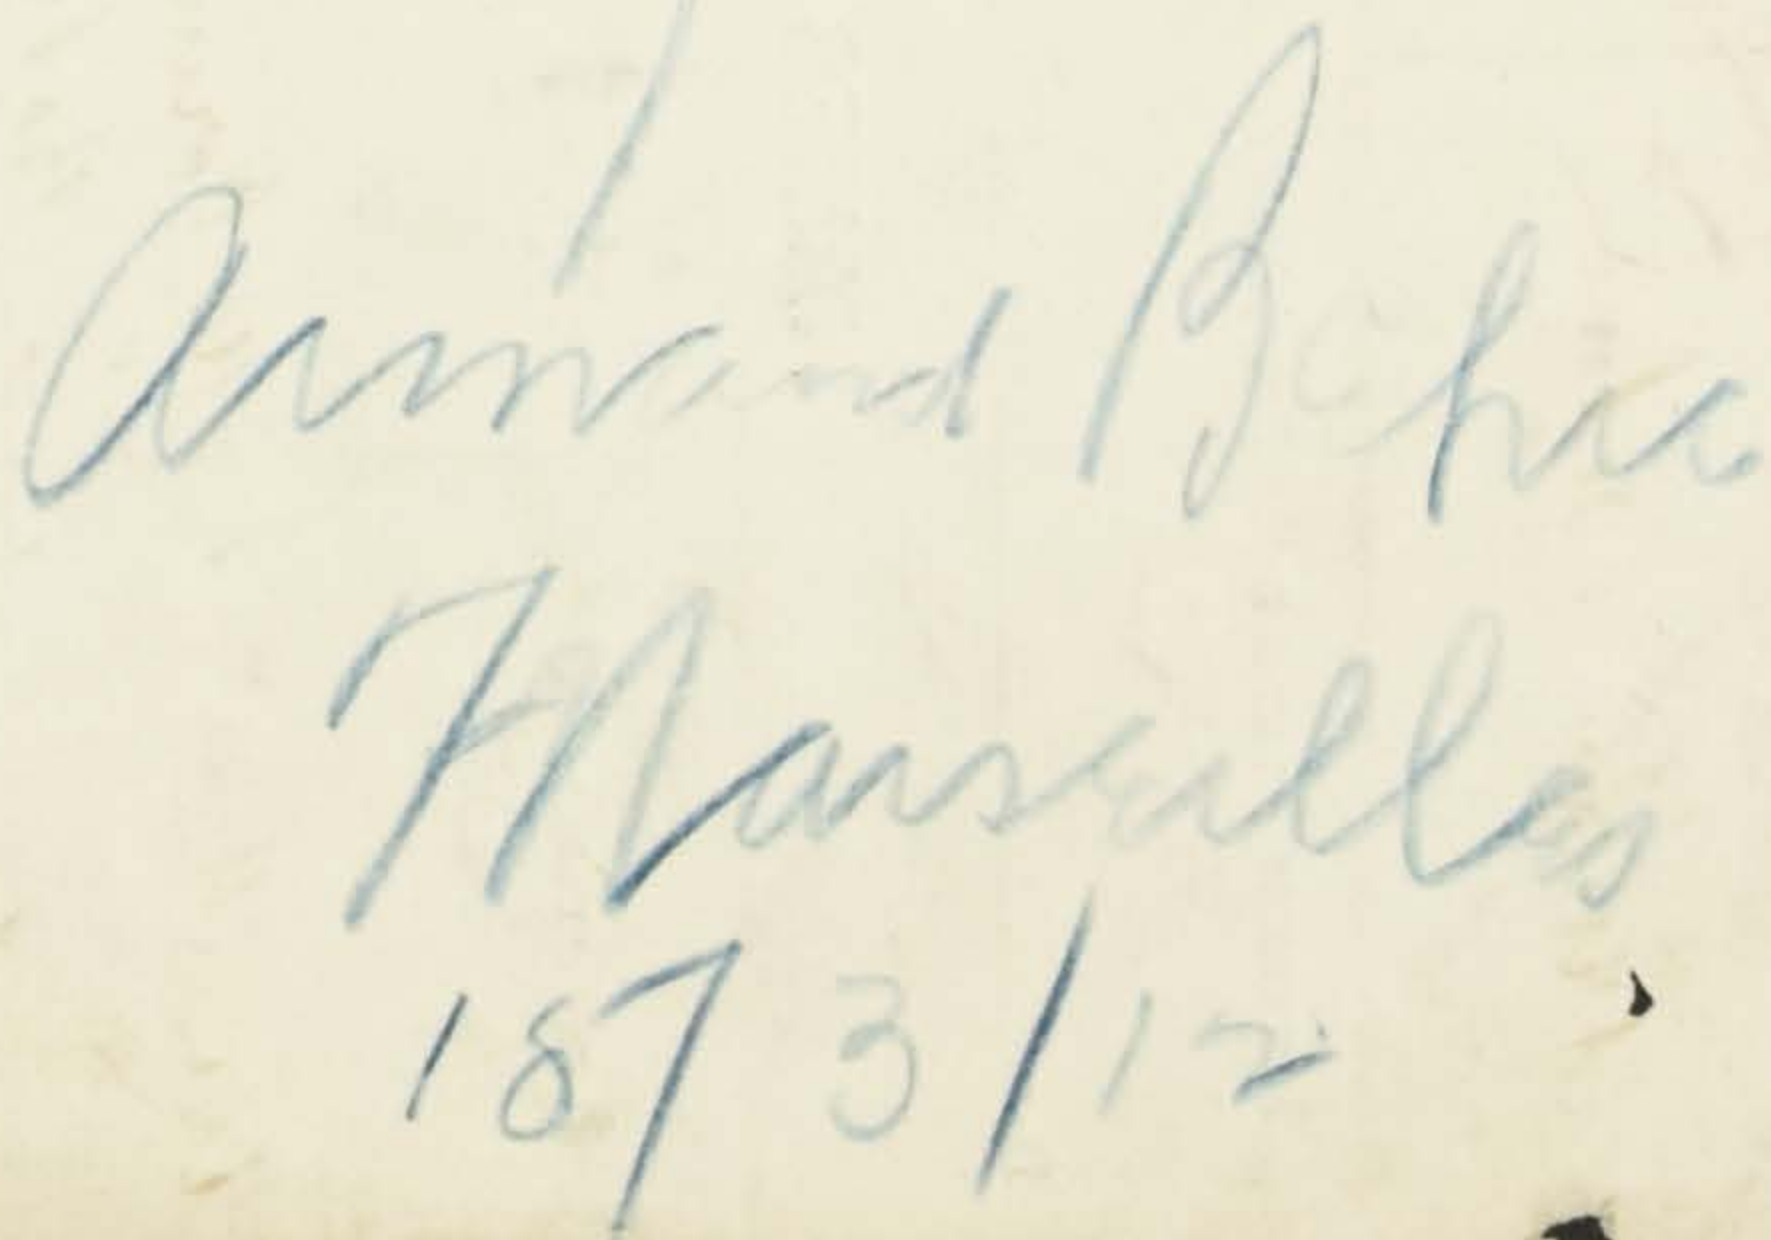 Armand Behic
Marseilles
18/3/12